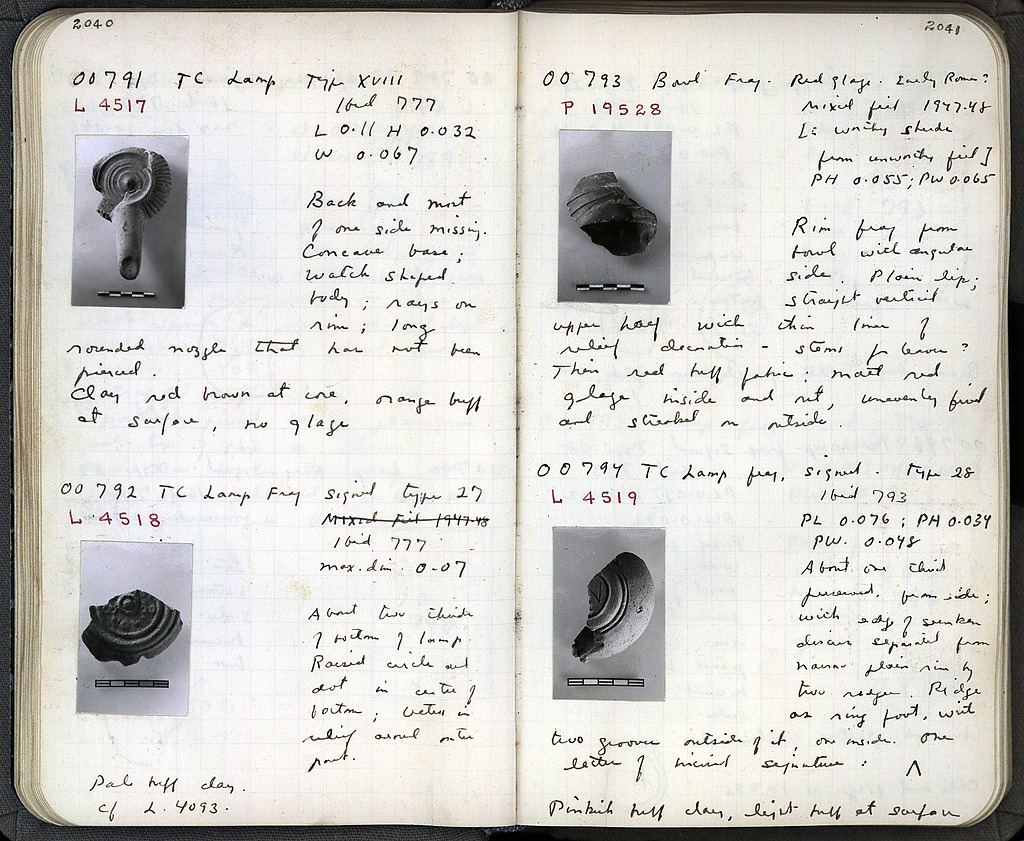 2040
OO 791 TC Lamp Type XVIII
L 4517
Ibid 777
L 0.11 H 0.032
W 0.067
Back and most
of one side missing.
Concave base;
watch shaped
body; rays on
rim; long
rounded nozzle that has not been
pierced.
Clay red brown at core, orange buff
at surface, no glaze
OO 792 TC Lamp Frag signed type 27
L 4518
Mixed fill 1947-48
Ibid 777
max. dim. 0.07
About two thirds
of bottom of lamp.
Raised circle and
dot in center of
bottom; letters in
relief around outer
part.
Pale buff clay.
cf L. 4093.
2041
OO 793 Bowl Frag. Red glaze. Early Roman?
P 19528
Mixed fill 1947-48
[= worthy sherds
from unworthy fill]
PH 0.055; PW 0.065
Rim frag from
bowl with angular
side. Plain lip;
straight vertical
upper half with thin lines of
relief decoration - stems for leaves?
Thin red buff fabric; matt red
glaze inside and out, unevenly fired
and streaked on outside.
OO 794 TC Lamp frag, signed. type 28
L 4519
Ibid 793
PL 0.076; PH 0.034
PW. 0.048
About one third
preserved, from side;
with edge of sunken
discus separated from
narrow plain rim by
two ridges. Ridge
as ring foot, with
two grooves outside of it, one inside. One
letter of incised signature: Λ
Pinkish buff clay, light buff at surface